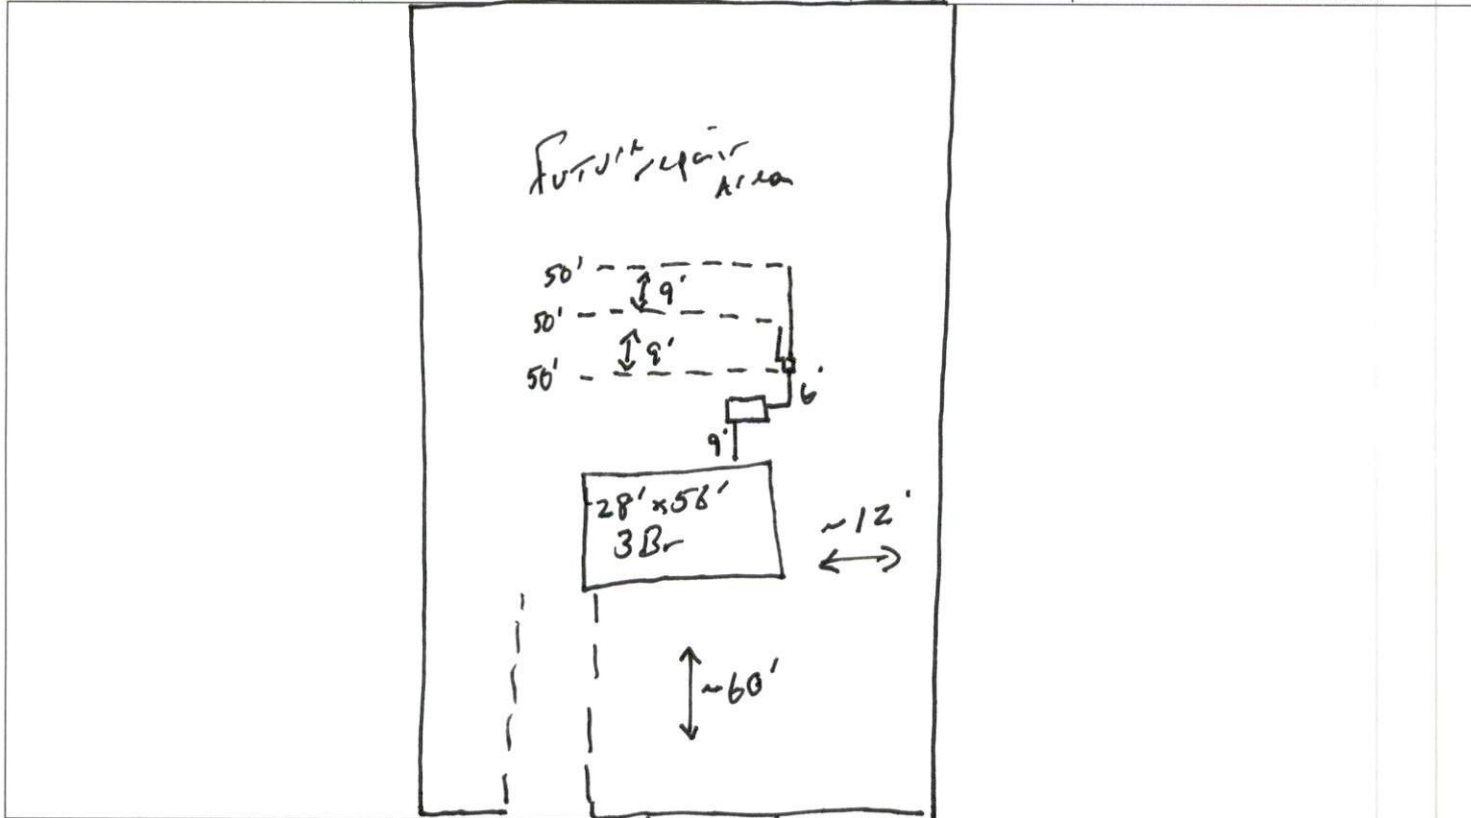 Future repair
Area
50'
9'
50'
9'
50'
6'
9'
28'x56'
3Br
~12'
~60'